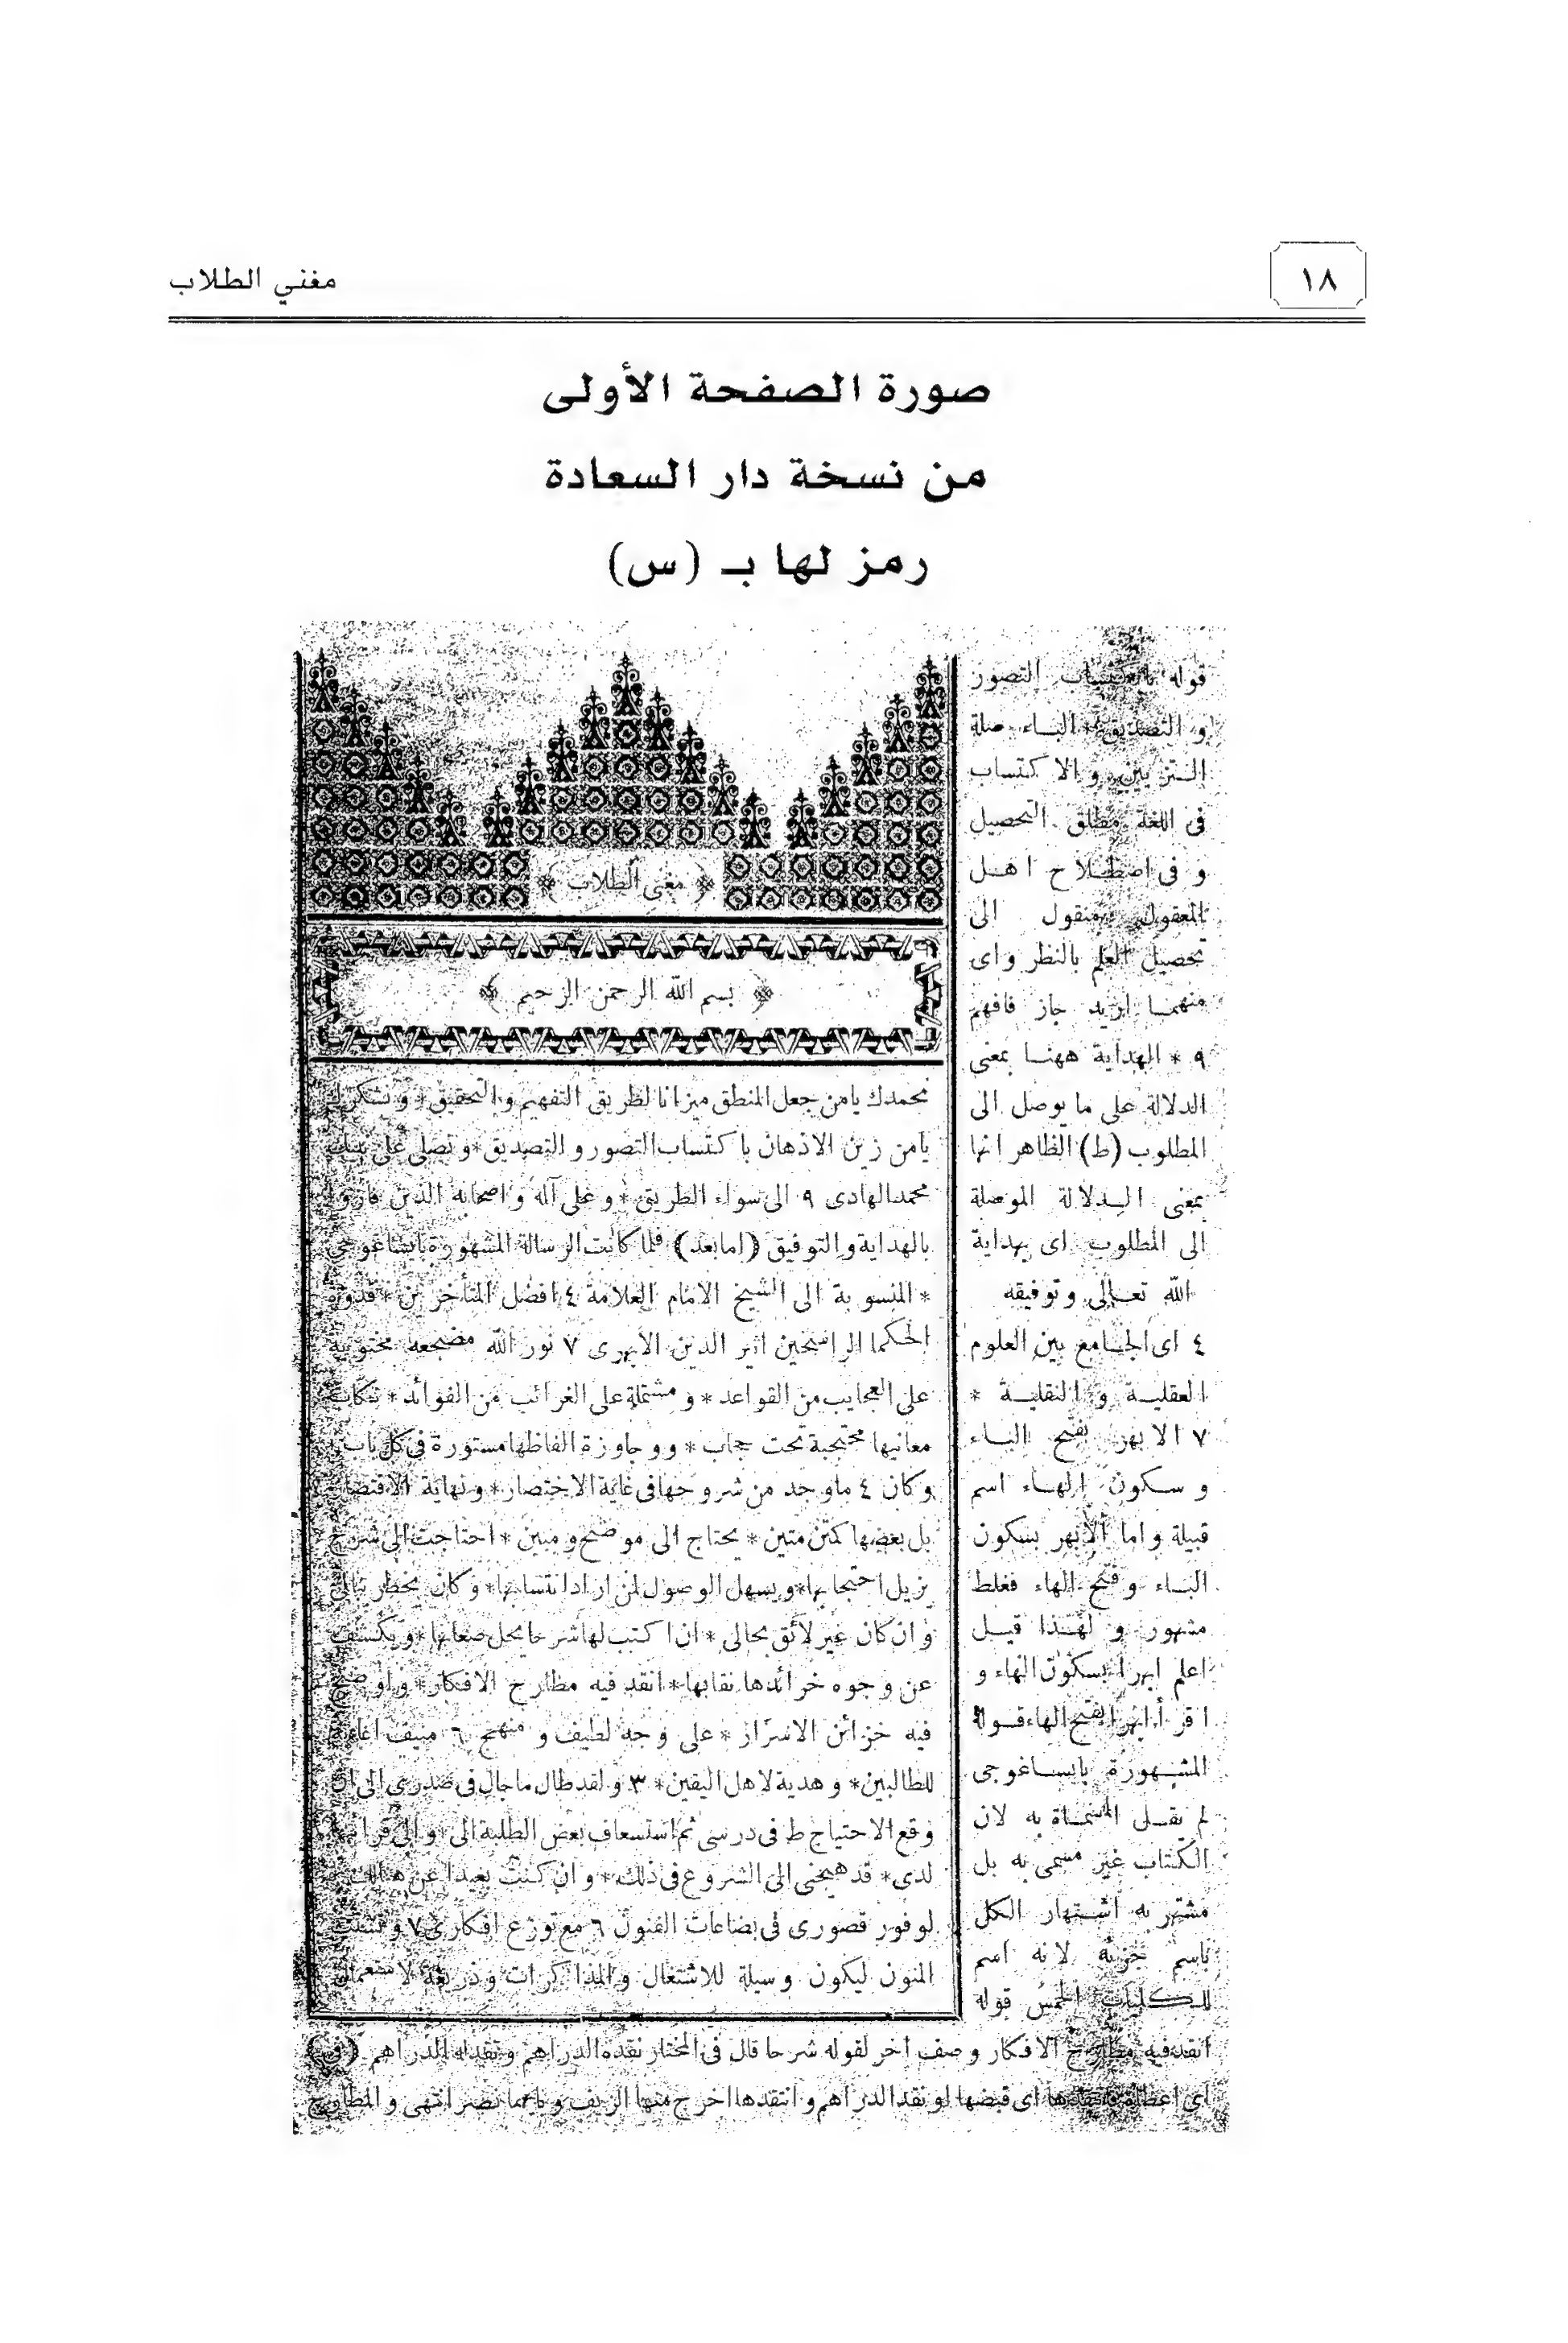 ١٨
مغني الطلاب
صورة الصفحة الأولى
من نسخة دار السعادة
رمز لها بـ (س)
﴿ مغنى الطلاب ﴾
﴿ بسم الله الرحمن الرحيم ﴾
نحمدك يامن جعل المنطق ميزانا لطريق التفهيم والتحقيق * ونشكرك
يامن زين الاذهان باكتساب التصور و التصديق * و نصلى على نبيك
محمد الهادى ٩ الى سواء الطريق * و على آله و اصحابه الذين فازوا
بالهداية و التوفيق (اما بعد) فلما كانت الرسالة المشهورة بايساغوجى
* المنسوبة الى الشيخ الامام العلامة ٤ افضل المتأخرين * قدوة
الحكما الراسخين اثير الدين الابهرى ٧ نور الله مضجعه محتوية
على العجايب من القواعد * و مشتملة على الغرائب من الفوائد * فكانت
معانيها محتجبة تحت حجاب * ووجاوزة الفاظها مستورة فى كل باب
وكان ٤ ماوجد من شروحها فى غاية الاختصار * و نهاية الاقتصار
بل بعضها كمتن متين * يحتاج الى موضح و مبين * احتاجت الى شرح
يزيل احتجابها * و يسهل الوصول لمن اراد انتسابها * و كان يخطر ببالى
و ان كان غير لائق بحالى * ان اكتب لها شرحا يحل صعابها * و يكشف
عن وجوه خرائدها نقابها * انقد فيه مطارح الافكار * و اوضح
فيه خزائن الاسرار * على وجه لطيف و منهج ٦ منيف اعانة
للطالبين * و هدية لاهل اليقين * ٣ و لقد طال ماجال فى صدرى الى ان
وقع الاحتياج ط فى درسى ثم استسعاف بعض الطلبة الى
لدى * قد هيجنى الى الشروع فى ذلك * و ان كنت بعيدا عن هنالك
لوفور قصورى فى بضاعات الفنون ٦ مع توزع افكارى ٧ و تشتت
المنون ليكون وسيلة للاشتغال والمذاكرات و ذريعة لاستعمال
قوله باكتساب التصور
و التصديق الباء صلة
التزيين و الاكتساب
فى اللغة مطلق التحصيل
و فى اصطلاح اهل
المعقول منقول الى
تحصيل العلم بالنظر و اى
منهما اريد جاز فافهم
٩ * الهداية ههنا بمعنى
الدلالة على ما يوصل الى
المطلوب (ط) الظاهر انها
بمعنى الدلالة الموصلة
الى المطلوب اى بهداية
الله تعالى و توفيقه
٤ اى الجامع بين العلوم
العقلية و النقلية *
٧ الابهر بفتح الباء
و سكون الهاء اسم
قبيلة و اما الابهر بسكون
الباء و فتح الهاء فغلط
مشهور و لهذا قيل
اعلم ابهرا بسكون الهاء و
اقرأ ابهرا بفتح الهاء قوله
المشهورة بايساغوجى
لم يقل المسماة به لان
الكتاب غير مسمى به بل
مشتهر به اشتهار الكل
باسم جزئه لانه اسم
للكليات الخمس قوله
انقد فيه مطارح الافكار وصف آخر لقوله شرحا قال فى المختار نقده الدراهم و نقد له الدراهم
اى اعطاه فانتقدها اى قبضها و نقد الدراهم و انتقدها اخرج منها الزيف و بابهما نصر انتهى و المطارح